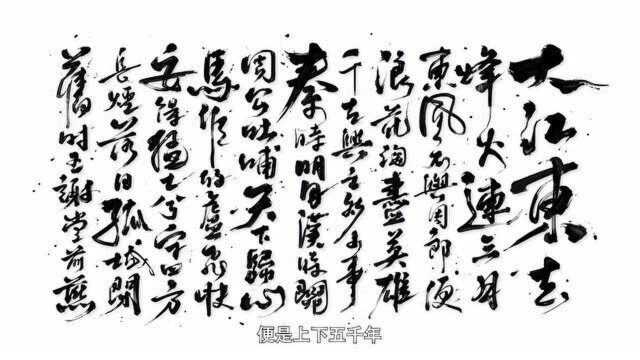 大江東去
烽火連三月
東風不與周郎便
浪花淘盡英雄
千古興亡多少事
秦時明月漢時關
周公吐哺天下歸心
馬作的盧飛快
安得猛士兮守四方
長煙落日孤城閉
舊時王謝堂前燕
便是上下五千年